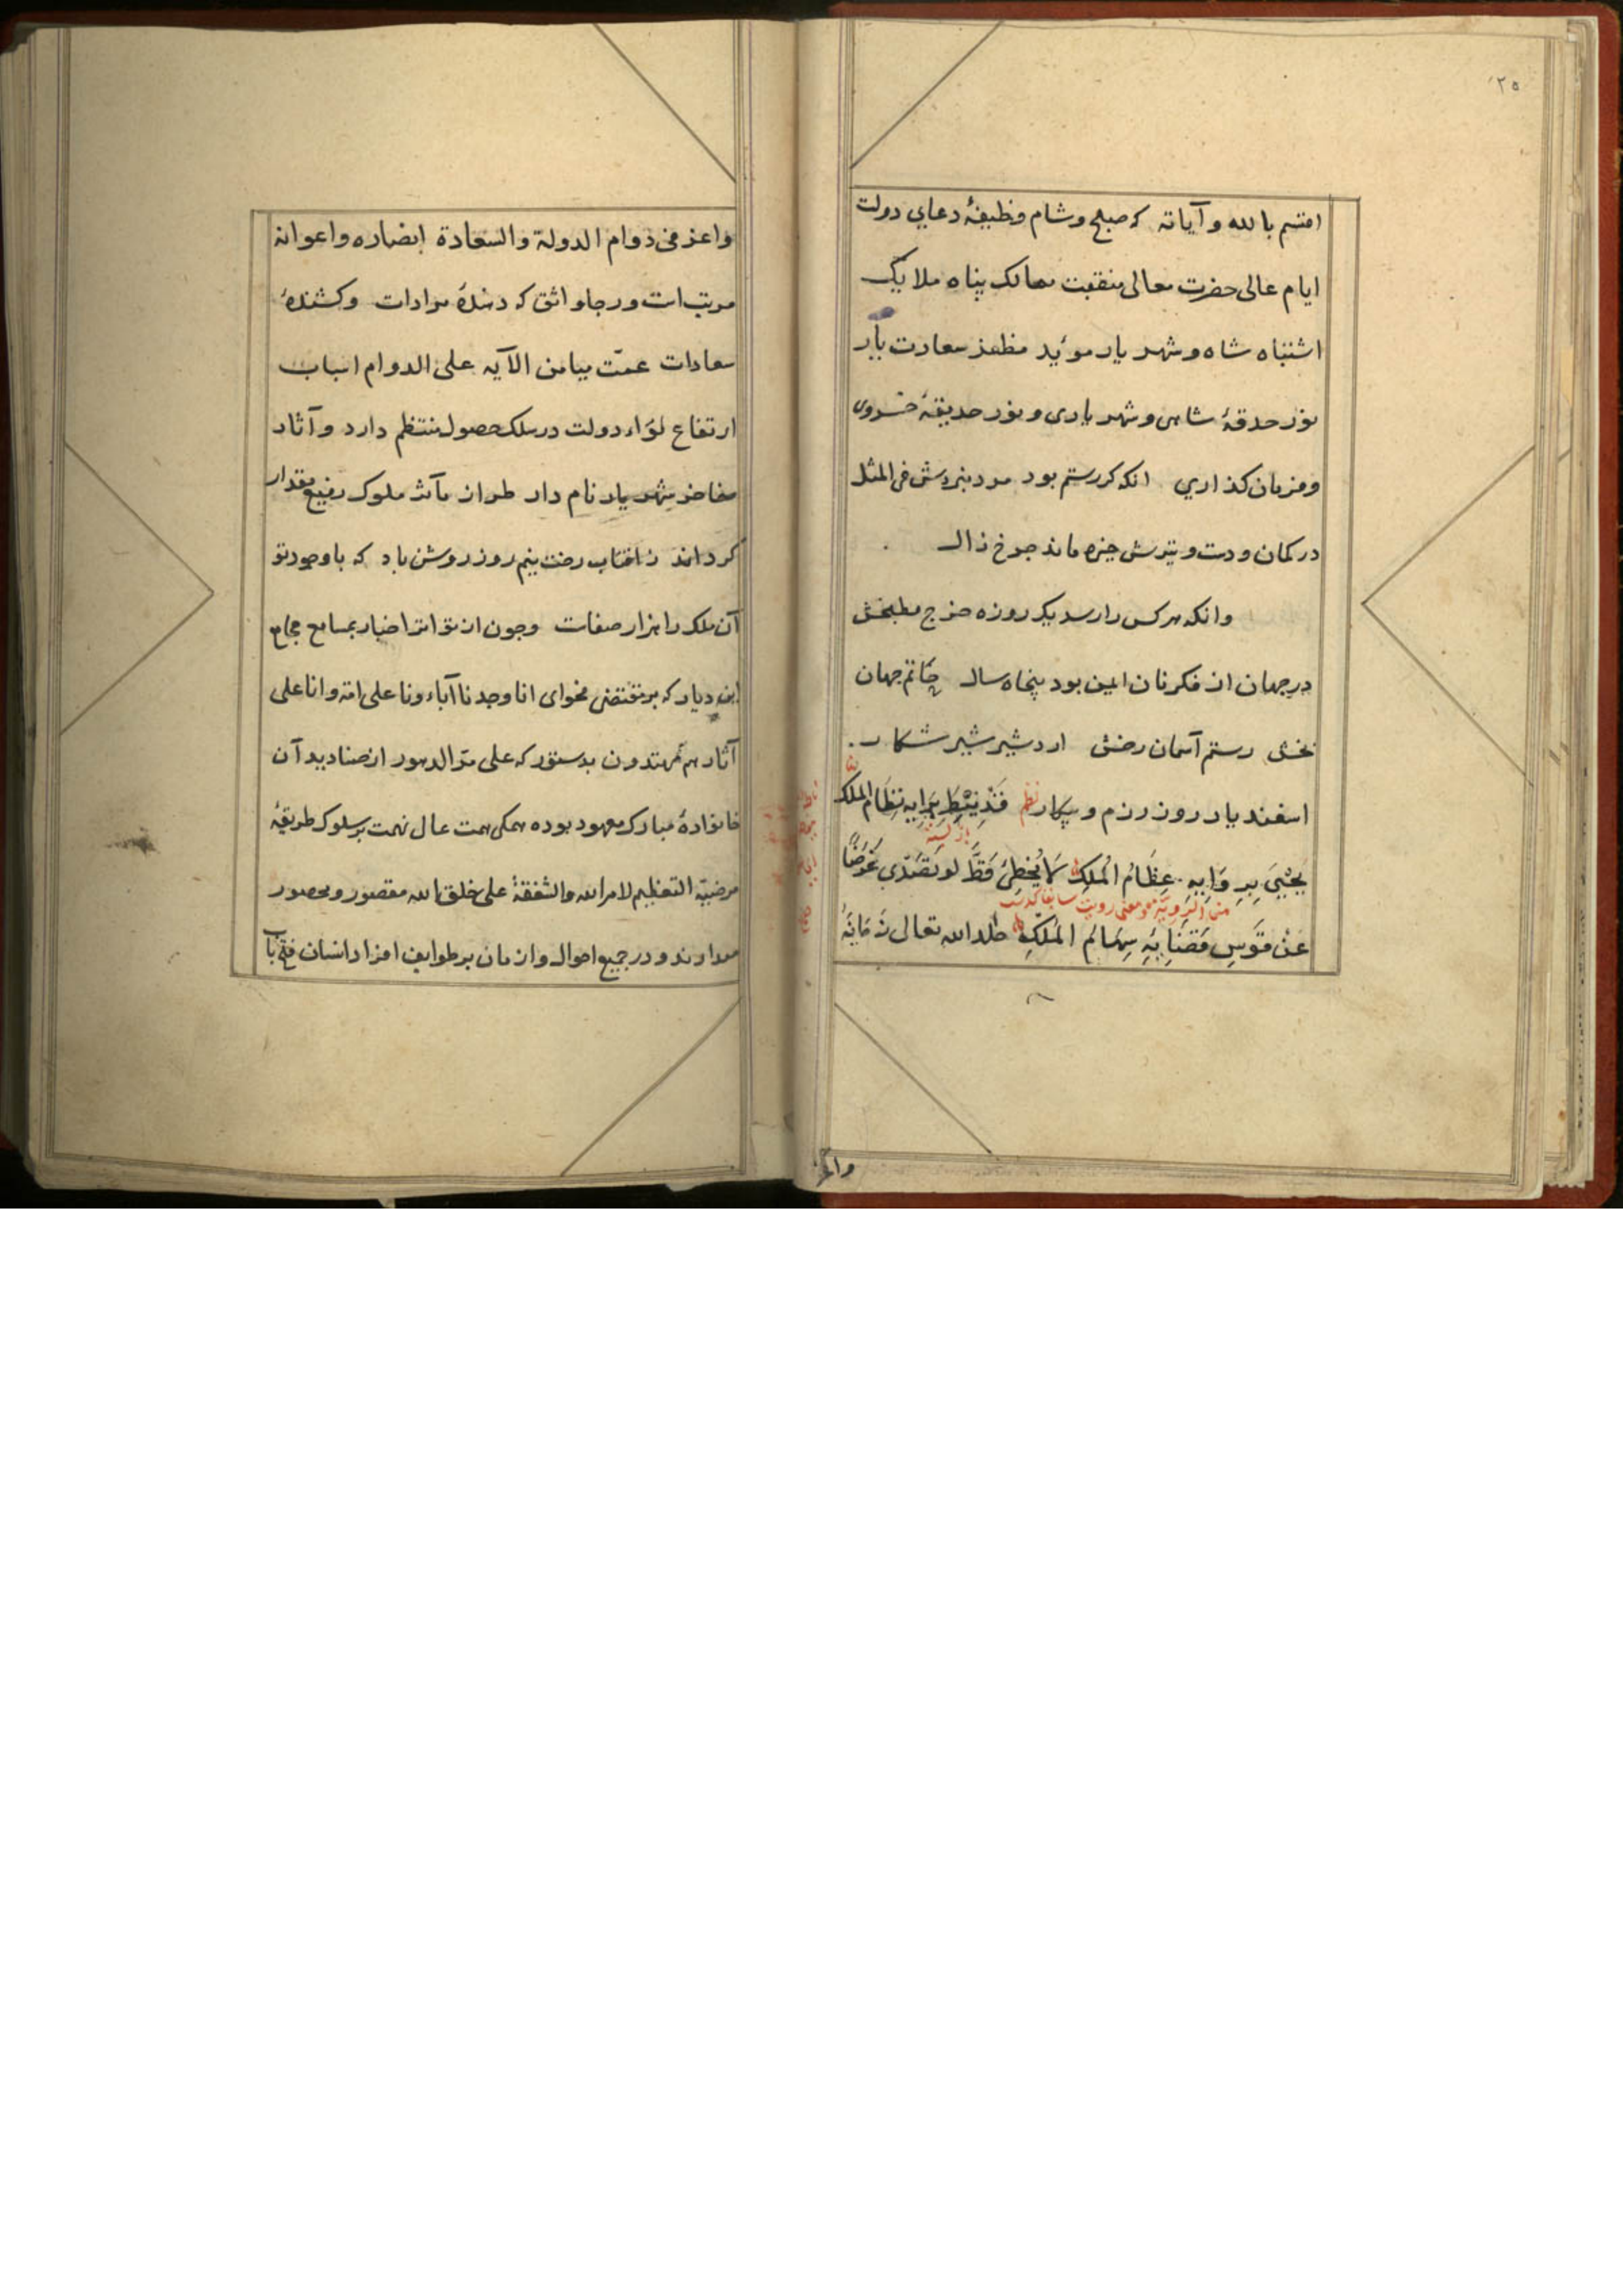 ۲۵
اقسم بالله و آیاته که صبلح و شام وظیفهٔ دعاي دولت
ایام عالی حضرت معالی منقبت ممالک پناه ملایک
اشتباه شاه و شهریار موئید مظفر سعادت یار
نور حدقهٔ شاهی و شهریاری و نور حدیقهٔ خسروی
و مزبان کذاري انکه کر رستم بود مرد نبردش فی المثل
در کمان ودست و تیرش خیره ماند چرخ زال
وانکه هرکس را رسد یک روزه خرج مطبخش
در جهان از فکر نان ایمن بود پنجاه سال حاتم جهان
بخش رستم آسمان رخش اردشیر شیر شکار
اسفندیار روز رزم و پیکار نظم برایه نظام الملک
یحیی برواییه عظام الملک ما یخطئ قط لو تصدی غرضا
من الرویة معنی رویت
عن قوس قضایه سهام الملک خلد الله تعالی زمانه
واعز
واعز فی دوام الدولة والسعادة انصاره واعوانه
مرتب است و رجا واثق که دهندهٔ مرادات و کشندهٔ
سعادات عمّت میامن الآیه علی الدوام اسباب
ارتفاع لوّاء دولت در سلک حصول منتظم دارد و آثار
مفاخر شهریار نام دار طراز مآثر ملوک رفیع مقدار
کرداند ز افتاب رخت نیم روز روشن باد که با وجود تو
آن ملک را هزار صفات وچون از تواتر اخبار بمسامع مجامع
این دیار که بر مقتضی فحوای انا وجدنا آباءونا علی امة وانا علی
آثارهم مهتدون بدستور که علی مرّ الدهور از صنادید آن
خانوادهٔ مبارک معهود بوده همکی همت عال نهمت بر سلوک طریقهٔ
مرضیّه التعظیم لامر الله والشفقة علی خلق الله مقصور و محصور
میدارند و در جمیع احوال و ازمان بر طوایف افراد انسان فتح باب